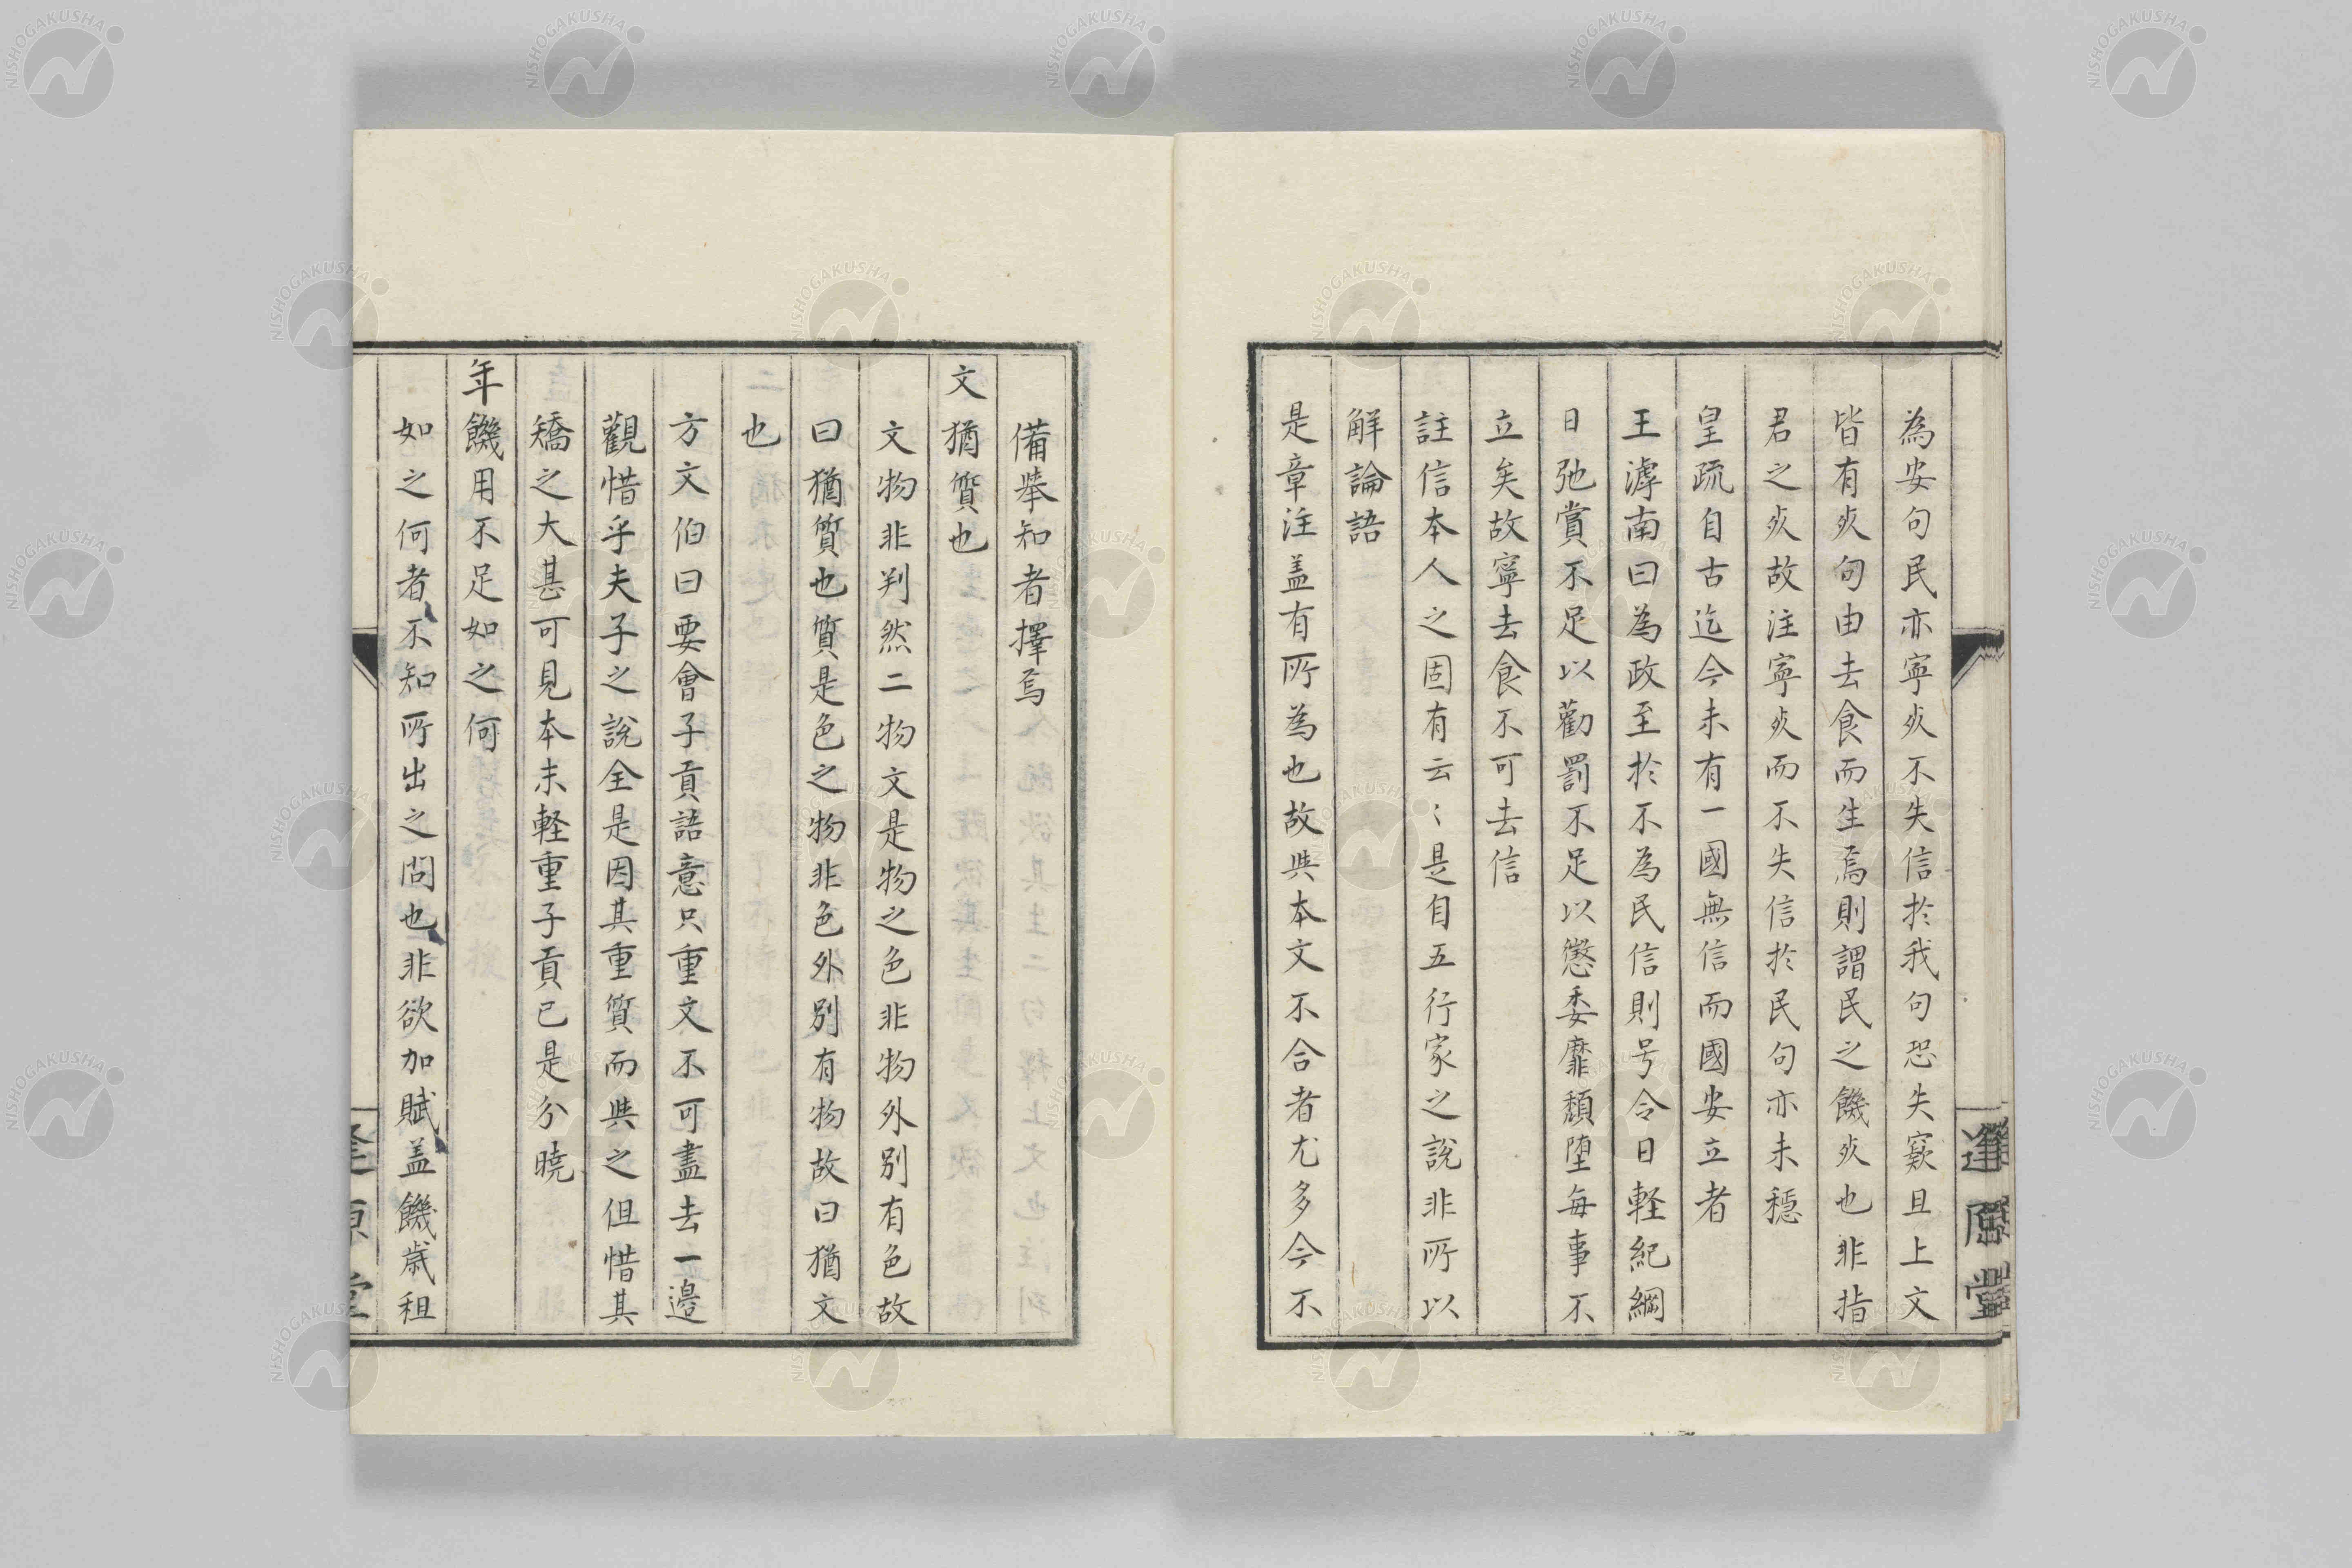 為安句民亦寧死不失信於我句恐失窾且上文
皆有死句由去食而生焉則謂民之饑死也非指
君之死故注寧死而不失信於民句亦未穏
皇疏自古迄今未有一國無信而國安立者
王滹南曰為政至於不為民信則号令日軽紀綱
日弛賞不足以勸罰不足以懲委靡頽堕每事不
立矣故寧去食不可去信
註信本人之固有云〻是自五行家之說非所以
解論語
是章注盖有所為也故與本文不合者尤多今不
備挙知者擇焉
文猶質也
文物非判然二物文是物之色非物外別有色故
曰猶質也質是色之物非色外別有物故曰猶文
也
方文伯曰要會子貢語意只重文不可盡去一邉
觀惜乎夫子之說全是因其重質而與之但惜其
矯之大甚可見本末軽重子貢已是分曉
年饑用不足如之何
如之何者不知所出之問也非欲加賦盖饑歳租
逢原堂
NISHOGAKUSHA